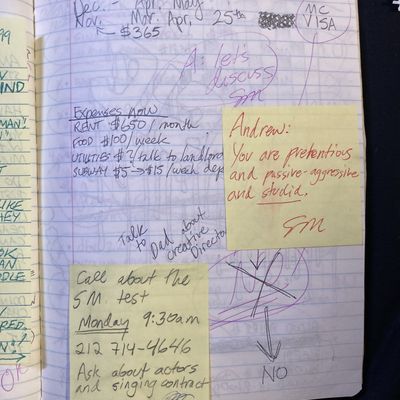 99
MIND
LIKE
THEY
Dec. - Apr. May
Nov. Mar. Apr. 25th
$365
MC
VISA
A: let's
discuss
SM
Expenses now
RENT $650/month
FOOD $100/week
UTILITIES $?/talk to landlord
SUBWAY $5→$15/week dep
Andrew:
You are pretentious
and passive-aggressive
and studid.
SM
Talk
to Dad about
creative
Director
Call about the
SM test
Monday 9:30am
212 714-4646
Ask about actors
and singing contract
SM
NO